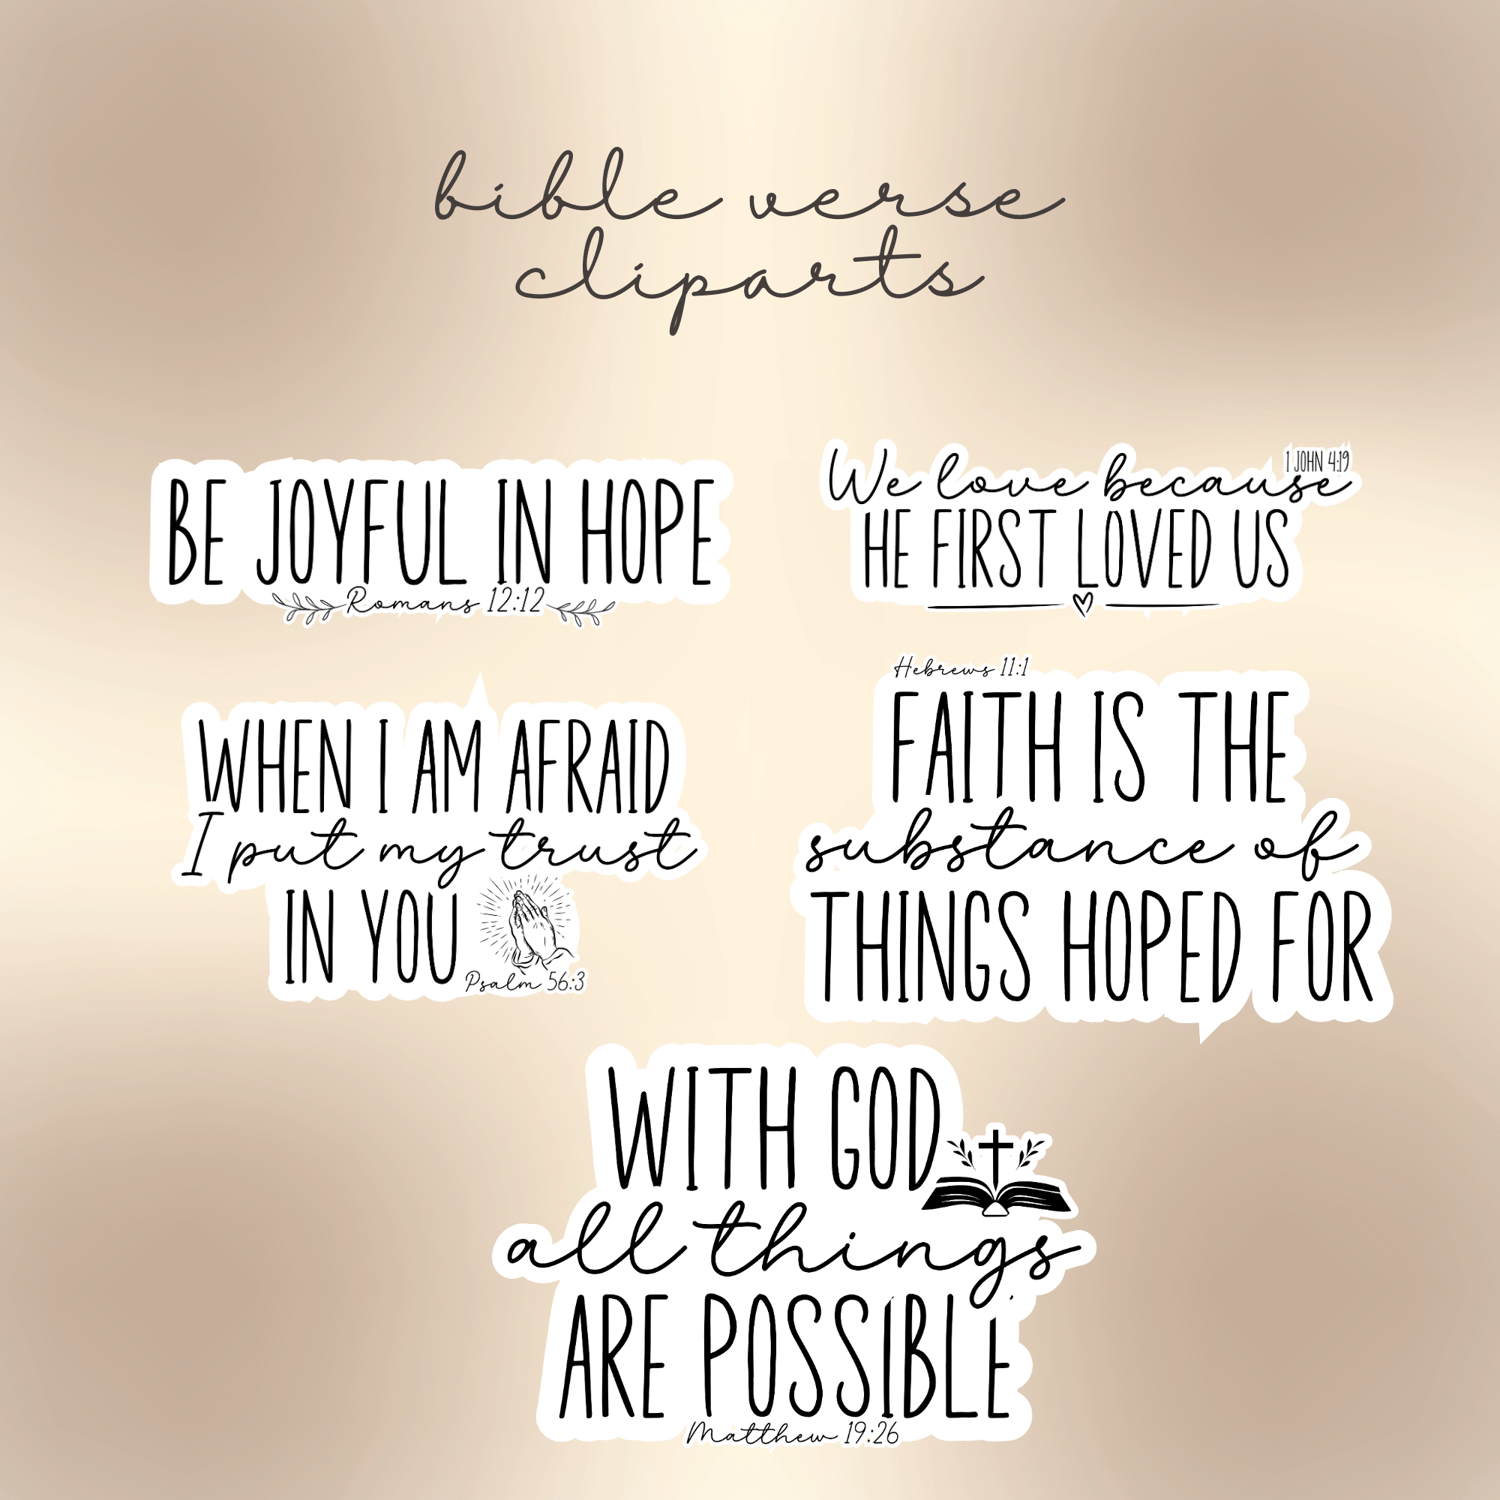 bible verse
cliparts
BE JOYFUL IN HOPE
Romans 12:12
1 JOHN 4:19
We love because
HE FIRST LOVED US
WHEN I AM AFRAID
I put my trust
IN YOU
Psalm 56:3
Hebrews 11:1
FAITH IS THE
substance of
THINGS HOPED FOR
WITH GOD
all things
ARE POSSIBLE
Matthew 19:26